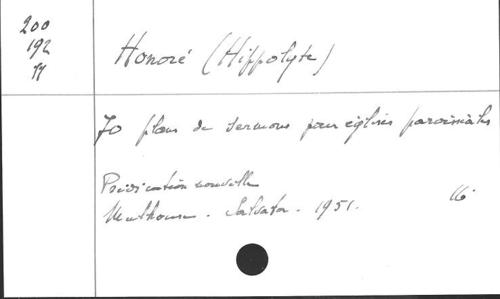 200
192
Honoré (Hippolyte)
70 plans de sermons pour églises paroissiales
Prédication nouvelle
Mulhouse - Salvator - 1951. 16°